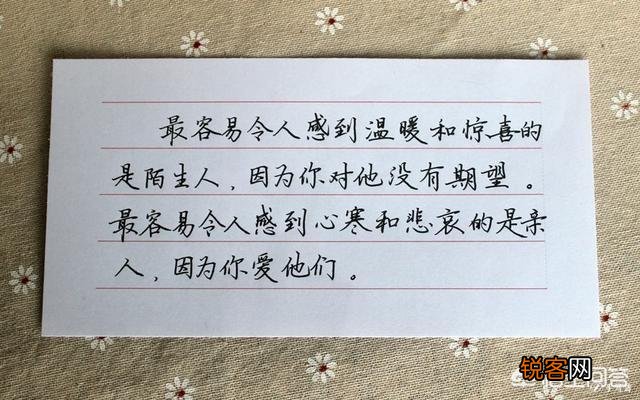 最容易令人感到温暖和惊喜的
是陌生人，因为你对他没有期望。
最容易令人感到心寒和悲哀的是亲
人，因为你爱他们。
锐客网